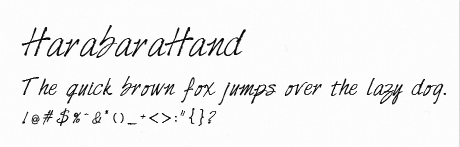 HarabaraHand
The quick brown fox jumps over the lazy dog.
!@#$%^&*()_+<>:"{}?